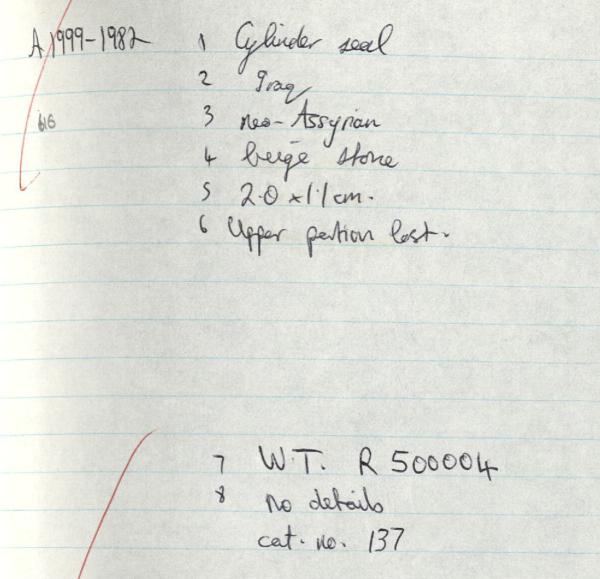 A1999-1982 1 Cylinder seal
2 Iraq
616 3 neo-Assyrian
4 beige stone
5 2.0 x 1.1 cm.
6 Upper portion lost.
7 W.T. R 500004
8 no details
cat. no. 137